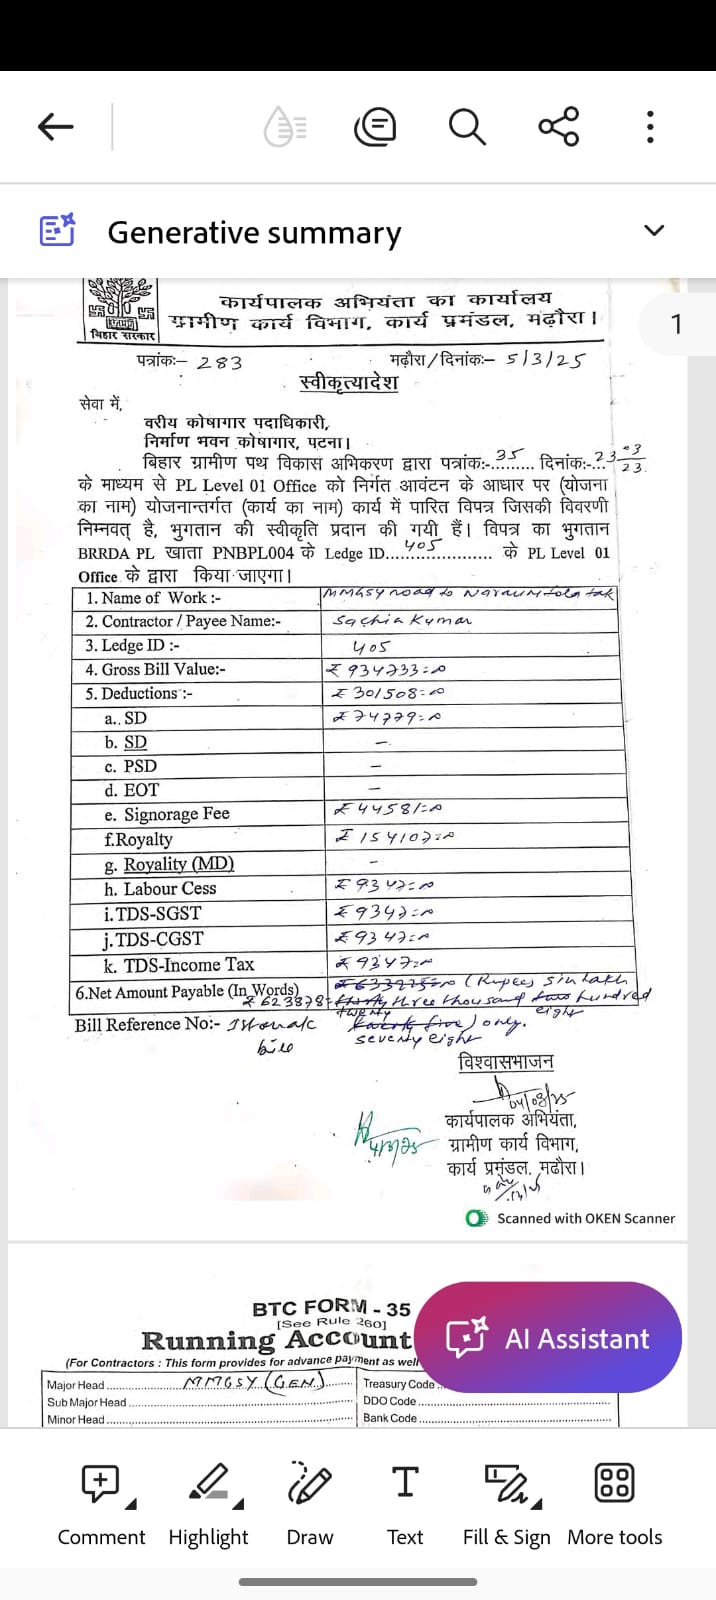 Generative summary
1
बिहार सरकार
कार्यपालक अभियंता का कार्यालय
ग्रामीण कार्य विभाग, कार्य प्रमंडल, मढ़ौरा।
पत्रांकः– 283 मढ़ौरा/दिनांकः– 5/3/25
स्वीकृत्यादेश
सेवा में,
वरीय कोषागार पदाधिकारी,
निर्माण भवन कोषागार, पटना।
बिहार ग्रामीण पथ विकास अभिकरण द्वारा पत्रांकः-..35.. दिनांकः-..
के माध्यम से PL Level 01 Office को निर्गत आवंटन के आधार पर (योजना
का नाम) योजनान्तर्गत (कार्य का नाम) कार्य में पारित विपत्र जिसकी विवरणी
निम्नवत् है, भुगतान की स्वीकृति प्रदान की गयी हैं। विपत्र का भुगतान
BRRDA PL खाता PNBPL004 के Ledge ID...405... के PL Level 01
Office के द्वारा किया जाएगा।
1. Name of Work :- MMGSY road to Naraum tola tak
2. Contractor / Payee Name:- Sachin Kumar
3. Ledge ID :- 405
4. Gross Bill Value:-
5. Deductions :- ₹ 301508=00
a.. SD
b. SD –
c. PSD –
d. EOT –
e. Signorage Fee ₹ 44581=00
f.Royalty ₹ 154107=00
g. Royality (MD) –
h. Labour Cess ₹ 9347=00
i.TDS-SGST ₹ 9347=00
j.TDS-CGST ₹ 9347=00
k. TDS-Income Tax ₹ 9347=00
6.Net Amount Payable (In Words) (Rupees six lakh
three thousand hundred
twenty eight
Bill Reference No:- only.
seventy eight
bill
विश्वासभाजन
04/03/25
कार्यपालक अभियंता,
ग्रामीण कार्य विभाग,
कार्य प्रमंडल, मढौरा।
Scanned with OKEN Scanner
BTC FORM - 35
[See Rule 260]
Running Account
(For Contractors : This form provides for advance payment as well
Major Head MMGSY (GEN) Treasury Code
Sub Major Head DDO Code
Minor Head Bank Code
AI Assistant
Comment Highlight Draw Text Fill & Sign More tools